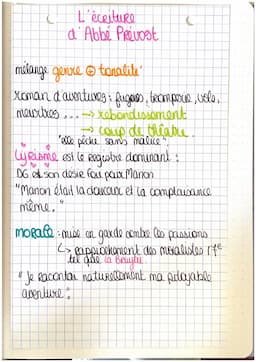 L'écriture
d'Abbé Prévost
mélange genre ⊕ tonalité
roman d'aventures : fugues, tromperie, vols,
meurtres ... → rebondissement
→ coup de théâtre
"elle pèche sans malice"
Lyrisme est le registre dominant :
DG et son désir fou pour Manon
"Manon était la douceur et la complaisance
même."
MORALE : mise en garde contre les passions
↳ rapprochement des moralistes 17e
tel que La Bruyère
"Je racontai naturellement ma pitoyable
aventure".